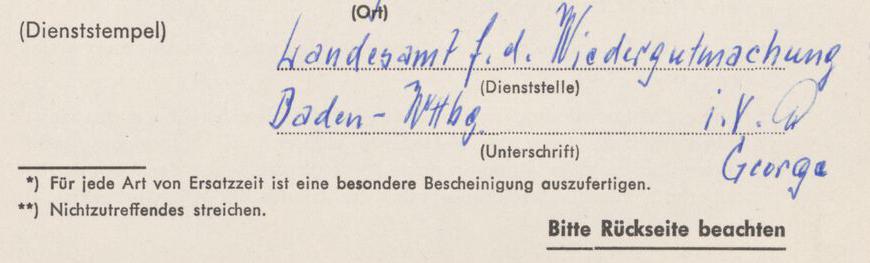 (Ort)
(Dienststempel)
Landesamt f. d. Wiedergutmachung
(Dienststelle)
Baden-Wttbg. i.V.
(Unterschrift)
George
*) Für jede Art von Ersatzzeit ist eine besondere Bescheinigung auszufertigen.
**) Nichtzutreffendes streichen.
Bitte Rückseite beachten